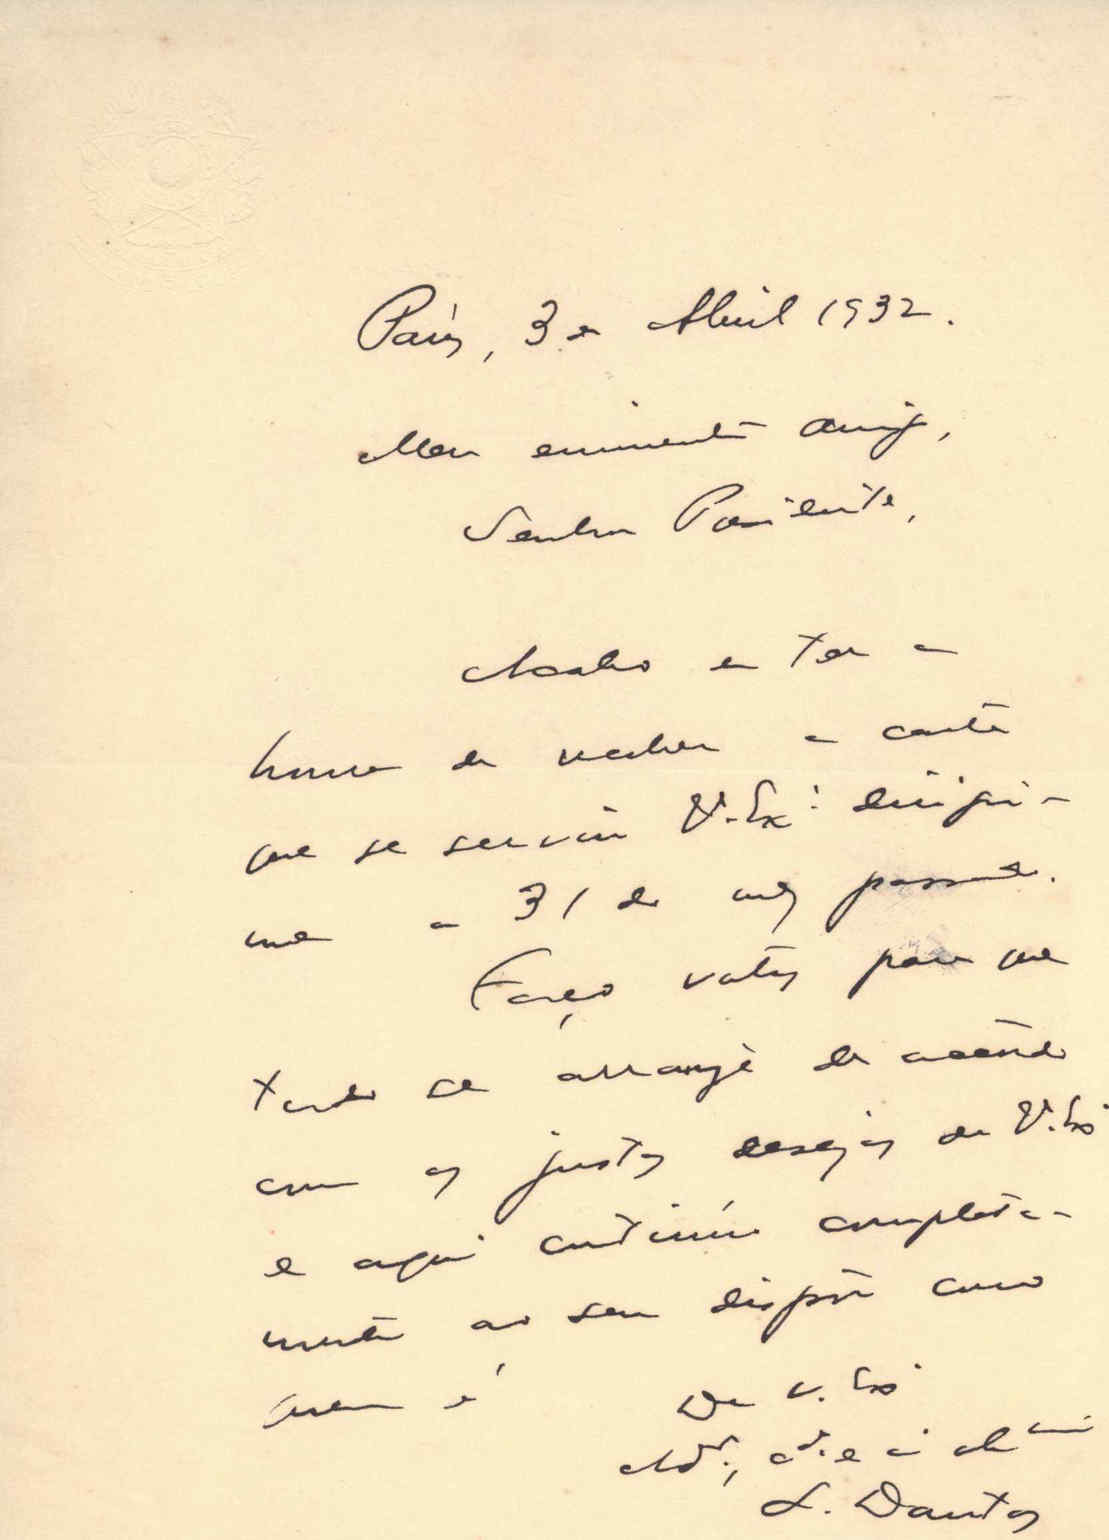 Paris, 3 de Abril 1932.
Meu eminente amigo,
Senhor Presidente,
Acabo de ter a
honra de receber a carta
que se serviu V. Exª. dirigir-
me a 31 do mez passado.
Faço votos para que
tudo se arranje de accôrdo
com os justos desejos de V. Exª
e aqui continúo completa-
mente ao seu dispôr como
quem é
De V. Exª
Adr., cr. e
L. Dantas